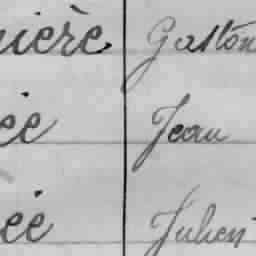 nière Gaston
ée Jean
ée Julien